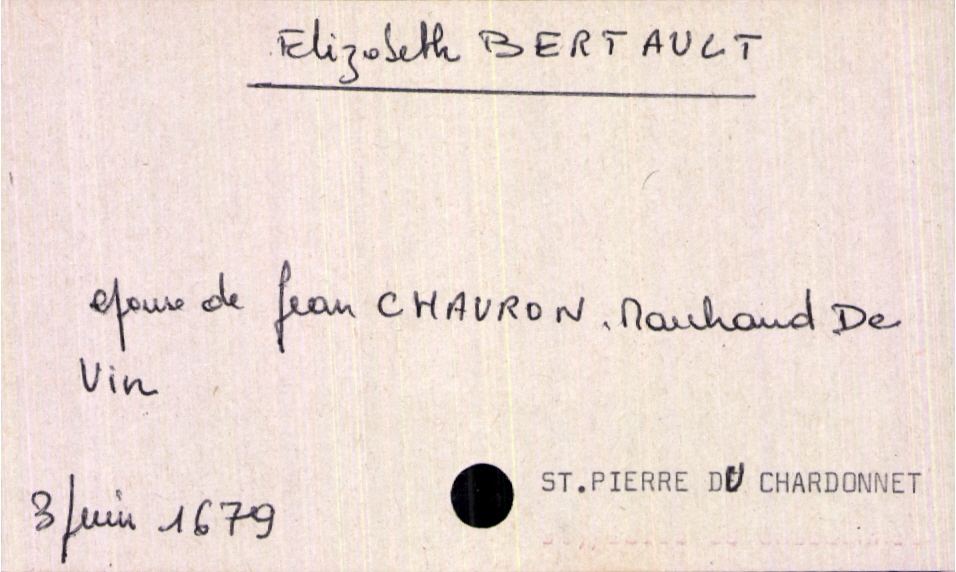 Elizabeth BERTAULT
epouse de Jean CHAURON. Marchand De
Vin
3 Juin 1679
ST.PIERRE DU CHARDONNET